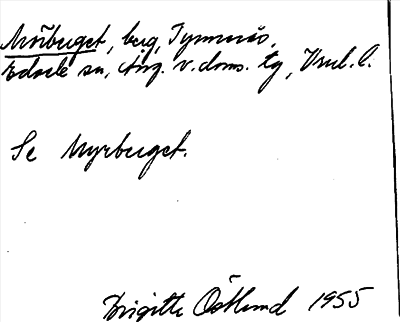 Mörberget, berg, Tynnnäs,
Edsele sn, Ång. v. doms. tg, Vnl. l.
Se Myrberget.
Birgitta Östlund 1955